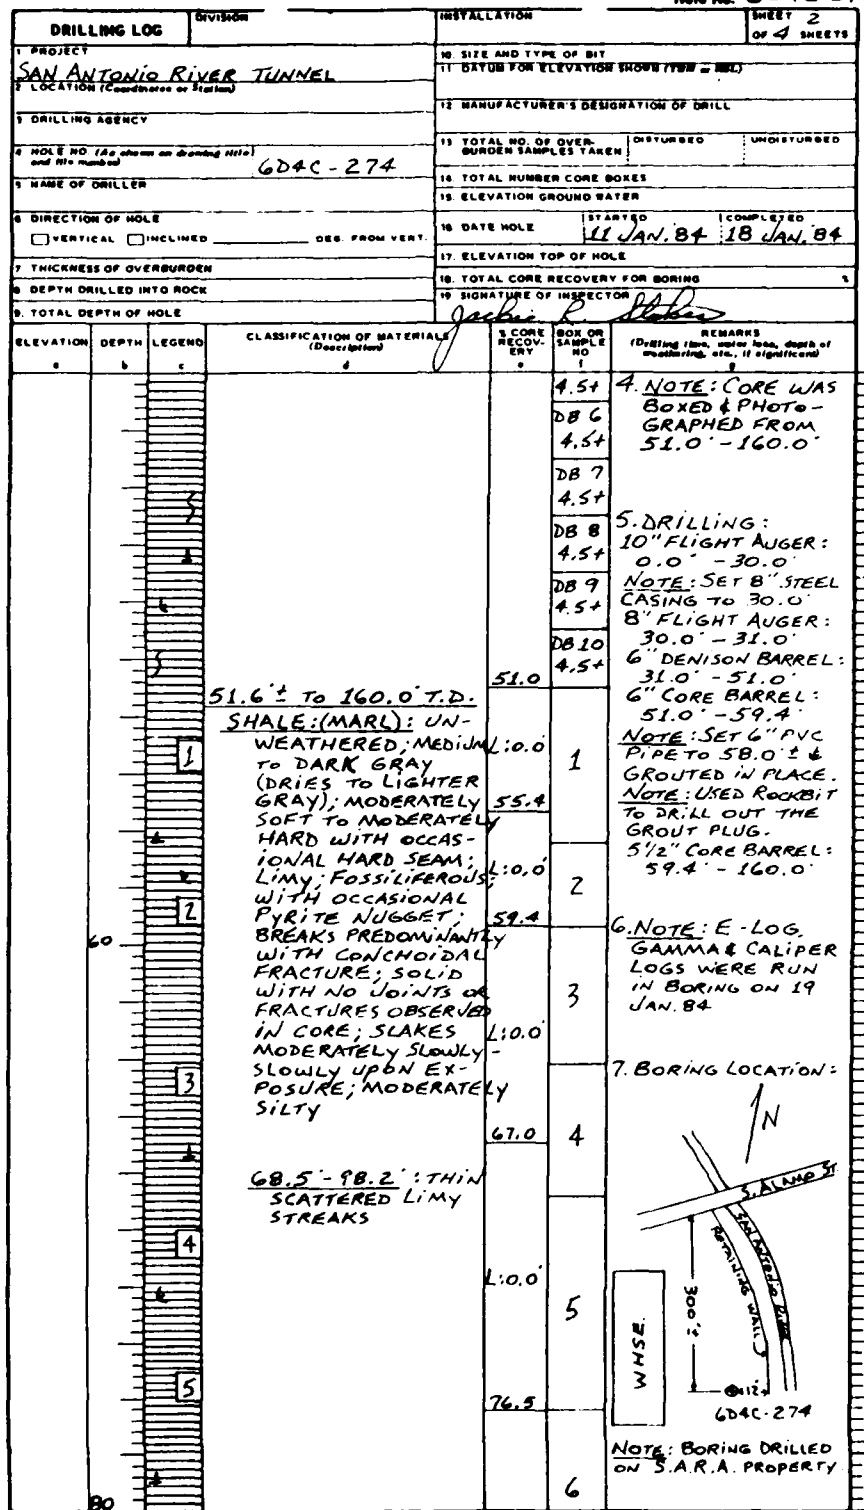 Hole No.
DRILLING LOG
DIVISION
INSTALLATION
SHEET 2
OF 4 SHEETS
1. PROJECT
SAN ANTONIO RIVER TUNNEL
2. LOCATION (Coordinates or Station)
3. DRILLING AGENCY
4. HOLE NO. (As shown on drawing title and file number)
6D4C-274
5. NAME OF DRILLER
6. DIRECTION OF HOLE
VERTICAL INCLINED DEG. FROM VERT.
7. THICKNESS OF OVERBURDEN
8. DEPTH DRILLED INTO ROCK
9. TOTAL DEPTH OF HOLE
10. SIZE AND TYPE OF BIT
11. DATUM FOR ELEVATION SHOWN (TBM or MSL)
12. MANUFACTURER'S DESIGNATION OF DRILL
13. TOTAL NO. OF OVER-
BURDEN SAMPLES TAKEN
DISTURBED
UNDISTURBED
14. TOTAL NUMBER CORE BOXES
15. ELEVATION GROUND WATER
16. DATE HOLE
STARTED
11 JAN. 84
COMPLETED
18 JAN. 84
17. ELEVATION TOP OF HOLE
18. TOTAL CORE RECOVERY FOR BORING %
19. SIGNATURE OF INSPECTOR
Jackie R. Stokes
ELEVATION
a
DEPTH
b
LEGEND
c
CLASSIFICATION OF MATERIALS
(Description)
d
% CORE
RECOV-
ERY
e
BOX OR
SAMPLE
NO
f
REMARKS
(Drilling time, water loss, depth of
weathering, etc., if significant)
g
60
80
1
2
3
4
5
51.6'± TO 160.0' T.D.
SHALE:(MARL): UN-
WEATHERED; MEDIUM
TO DARK GRAY
(DRIES TO LIGHTER
GRAY); MODERATELY
SOFT TO MODERATELY
HARD WITH OCCAS-
IONAL HARD SEAM;
LIMY; FOSSILIFEROUS;
WITH OCCASIONAL
PYRITE NUGGET;
BREAKS PREDOMINANTLY
WITH CONCHOIDAL
FRACTURE; SOLID
WITH NO JOINTS OR
FRACTURES OBSERVED
IN CORE; SLAKES
MODERATELY SLOWLY-
SLOWLY UPON EX-
POSURE; MODERATELY
SILTY
68.5'-98.2': THIN
SCATTERED LIMY
STREAKS
51.0
L:0.0'
55.4
L:0.0'
59.4
L:0.0'
67.0
L:0.0'
76.5
4.5+
DB 6
4.5+
DB 7
4.5+
DB 8
4.5+
DB 9
4.5+
DB 10
4.5+
1
2
3
4
5
6
4. NOTE: CORE WAS
BOXED & PHOTO-
GRAPHED FROM
51.0'-160.0'
5. DRILLING:
10" FLIGHT AUGER:
0.0'-30.0'
NOTE: SET 8" STEEL
CASING TO 30.0'
8" FLIGHT AUGER:
30.0'-31.0'
6" DENISON BARREL:
31.0'-51.0'
6" CORE BARREL:
51.0'-59.4'
NOTE: SET 6" PVC
PIPE TO 58.0'± &
GROUTED IN PLACE.
NOTE: USED ROCKBIT
TO DRILL OUT THE
GROUT PLUG.
5 1/2" CORE BARREL:
59.4'-160.0'
6. NOTE: E-LOG,
GAMMA & CALIPER
LOGS WERE RUN
IN BORING ON 19
JAN. 84
7. BORING LOCATION:
N
S. ALAMO ST.
SAN ANTONIO RIVER
RETAINING WALL
300'±
WHSE.
12'±
6D4C-274
NOTE: BORING DRILLED
ON S.A.R.A. PROPERTY